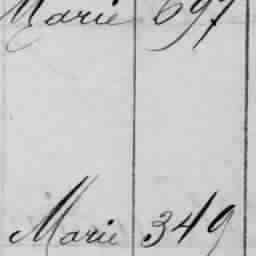 Marie 697
Marie 349